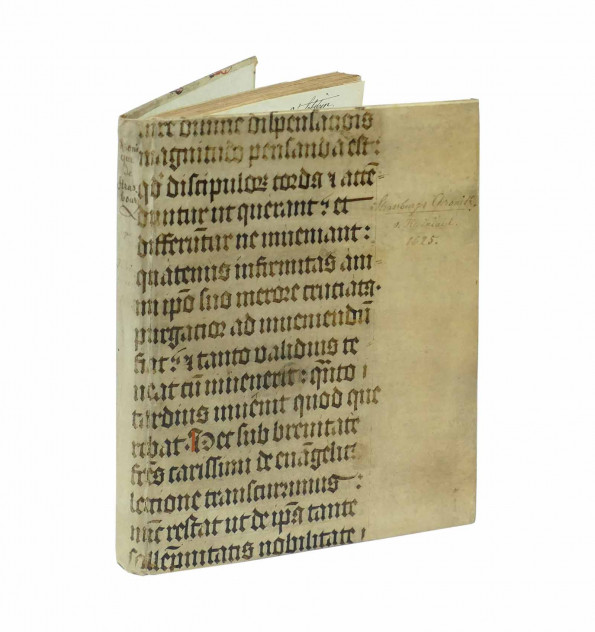 dumne dispensatōis
magnitudo pensanda est:
qd̄ discipuloꝝ corda ⁊ accē-
duntur ut querant: et
differūtur ne inueniant:
quatenus infirmitas am-
mi ip̄o suo merore cruciatꝰ.
purgatior ad inueniendū
fiat: ⁊ tanto validius te
neat cū inuenerit: qn̄to
tardius inuenit quod que
rebat. Hec sub breuitate
fr̄es carissimi de euāgelica
lectione transcurrimus:
nūc restat ut de ip̄a tante
sollēpnitatis nobilitate
1685.